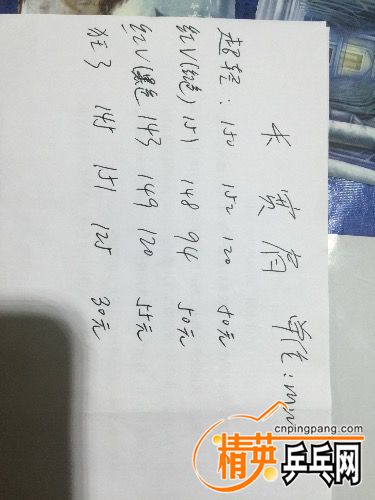 长 宽 高 单位:mm
超轻: 150 152 120 80元
红V(红色) 151 148 94 50元
红V(黑色 143 149 120 55元
狂3 145 151 125 30元
cnpingpang.com
精英乒乓网